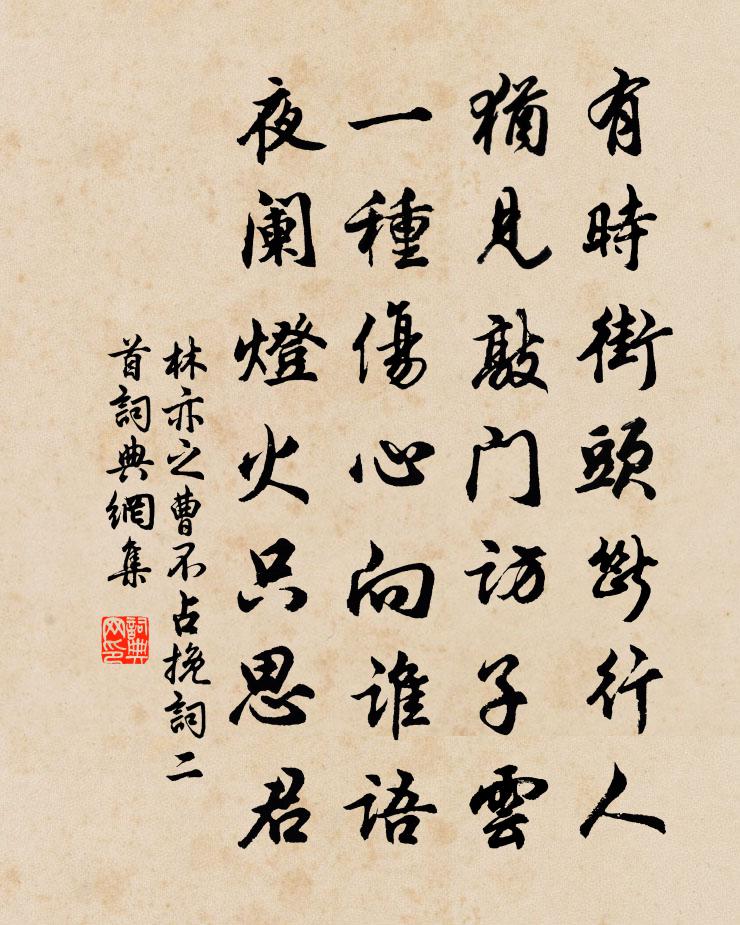 有時街頭斷行人
猶見敲门訪子雲
一種傷心向誰語
夜阑燈火只思君
林亦之曹不占挽詞二
首詞典網集
詞典
网印